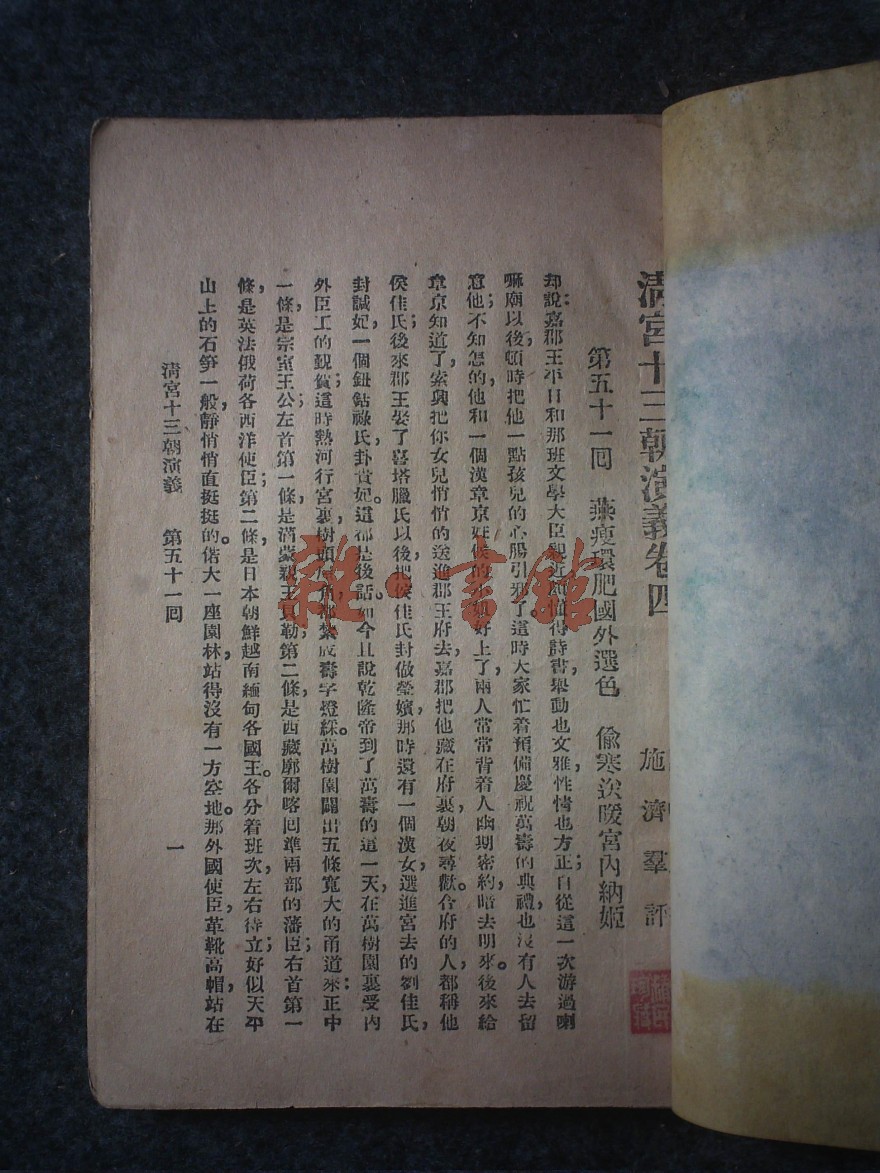 清宮十三朝演義卷四
施濟羣評
第五十一回 燕瘦環肥國外選色 偸寒送暖宮內納姬
却說嘉郡王平日和那班文學大臣親近
得詩書舉動也文雅性情也方正自從這一次游過喇
嘛廟以後頓時把他一點孩兒的心腸引邪了這時大家忙着預備慶祝萬壽的典禮也沒有人去留
意他不知怎的他和一個漢章京姓侯的
好上了兩人常常背着人幽期密約暗去明來。後來給
章京知道了索興把你女兒悄悄的送進郡王府去嘉郡把他藏在府裏朝夜尋歡。合府的人都稱他
侯佳氏後來郡王娶了喜塔臘氏以後把侯佳氏封做瑩嬪那時還有一個漢女選進宮去的劉佳氏
封誠妃一個鈕鈷祿氏卦貴妃。這都是後話。如今且說乾隆帝到了萬壽的這一天在萬樹園裏受內
外臣工的覲賀這時熱河行宮裏樹頭屋角都紮成壽字燈綵。萬樹園闢出五條寬大的甬道來正中
一條是宗室王公左首第一條是滿蒙親王貝勒第二條是西藏廓爾喀回準兩部的藩臣右首第一
條是英法俄荷各西洋使臣第二條是日本朝鮮越南緬甸各國王。各分着班次左右待立好似天平
山上的石笋一般靜悄悄直挺挺的。偌大一座園林站得沒有一方空地那外國使臣革靴高帽站在
清宮十三朝演義 第五十一回 一
雜·書館